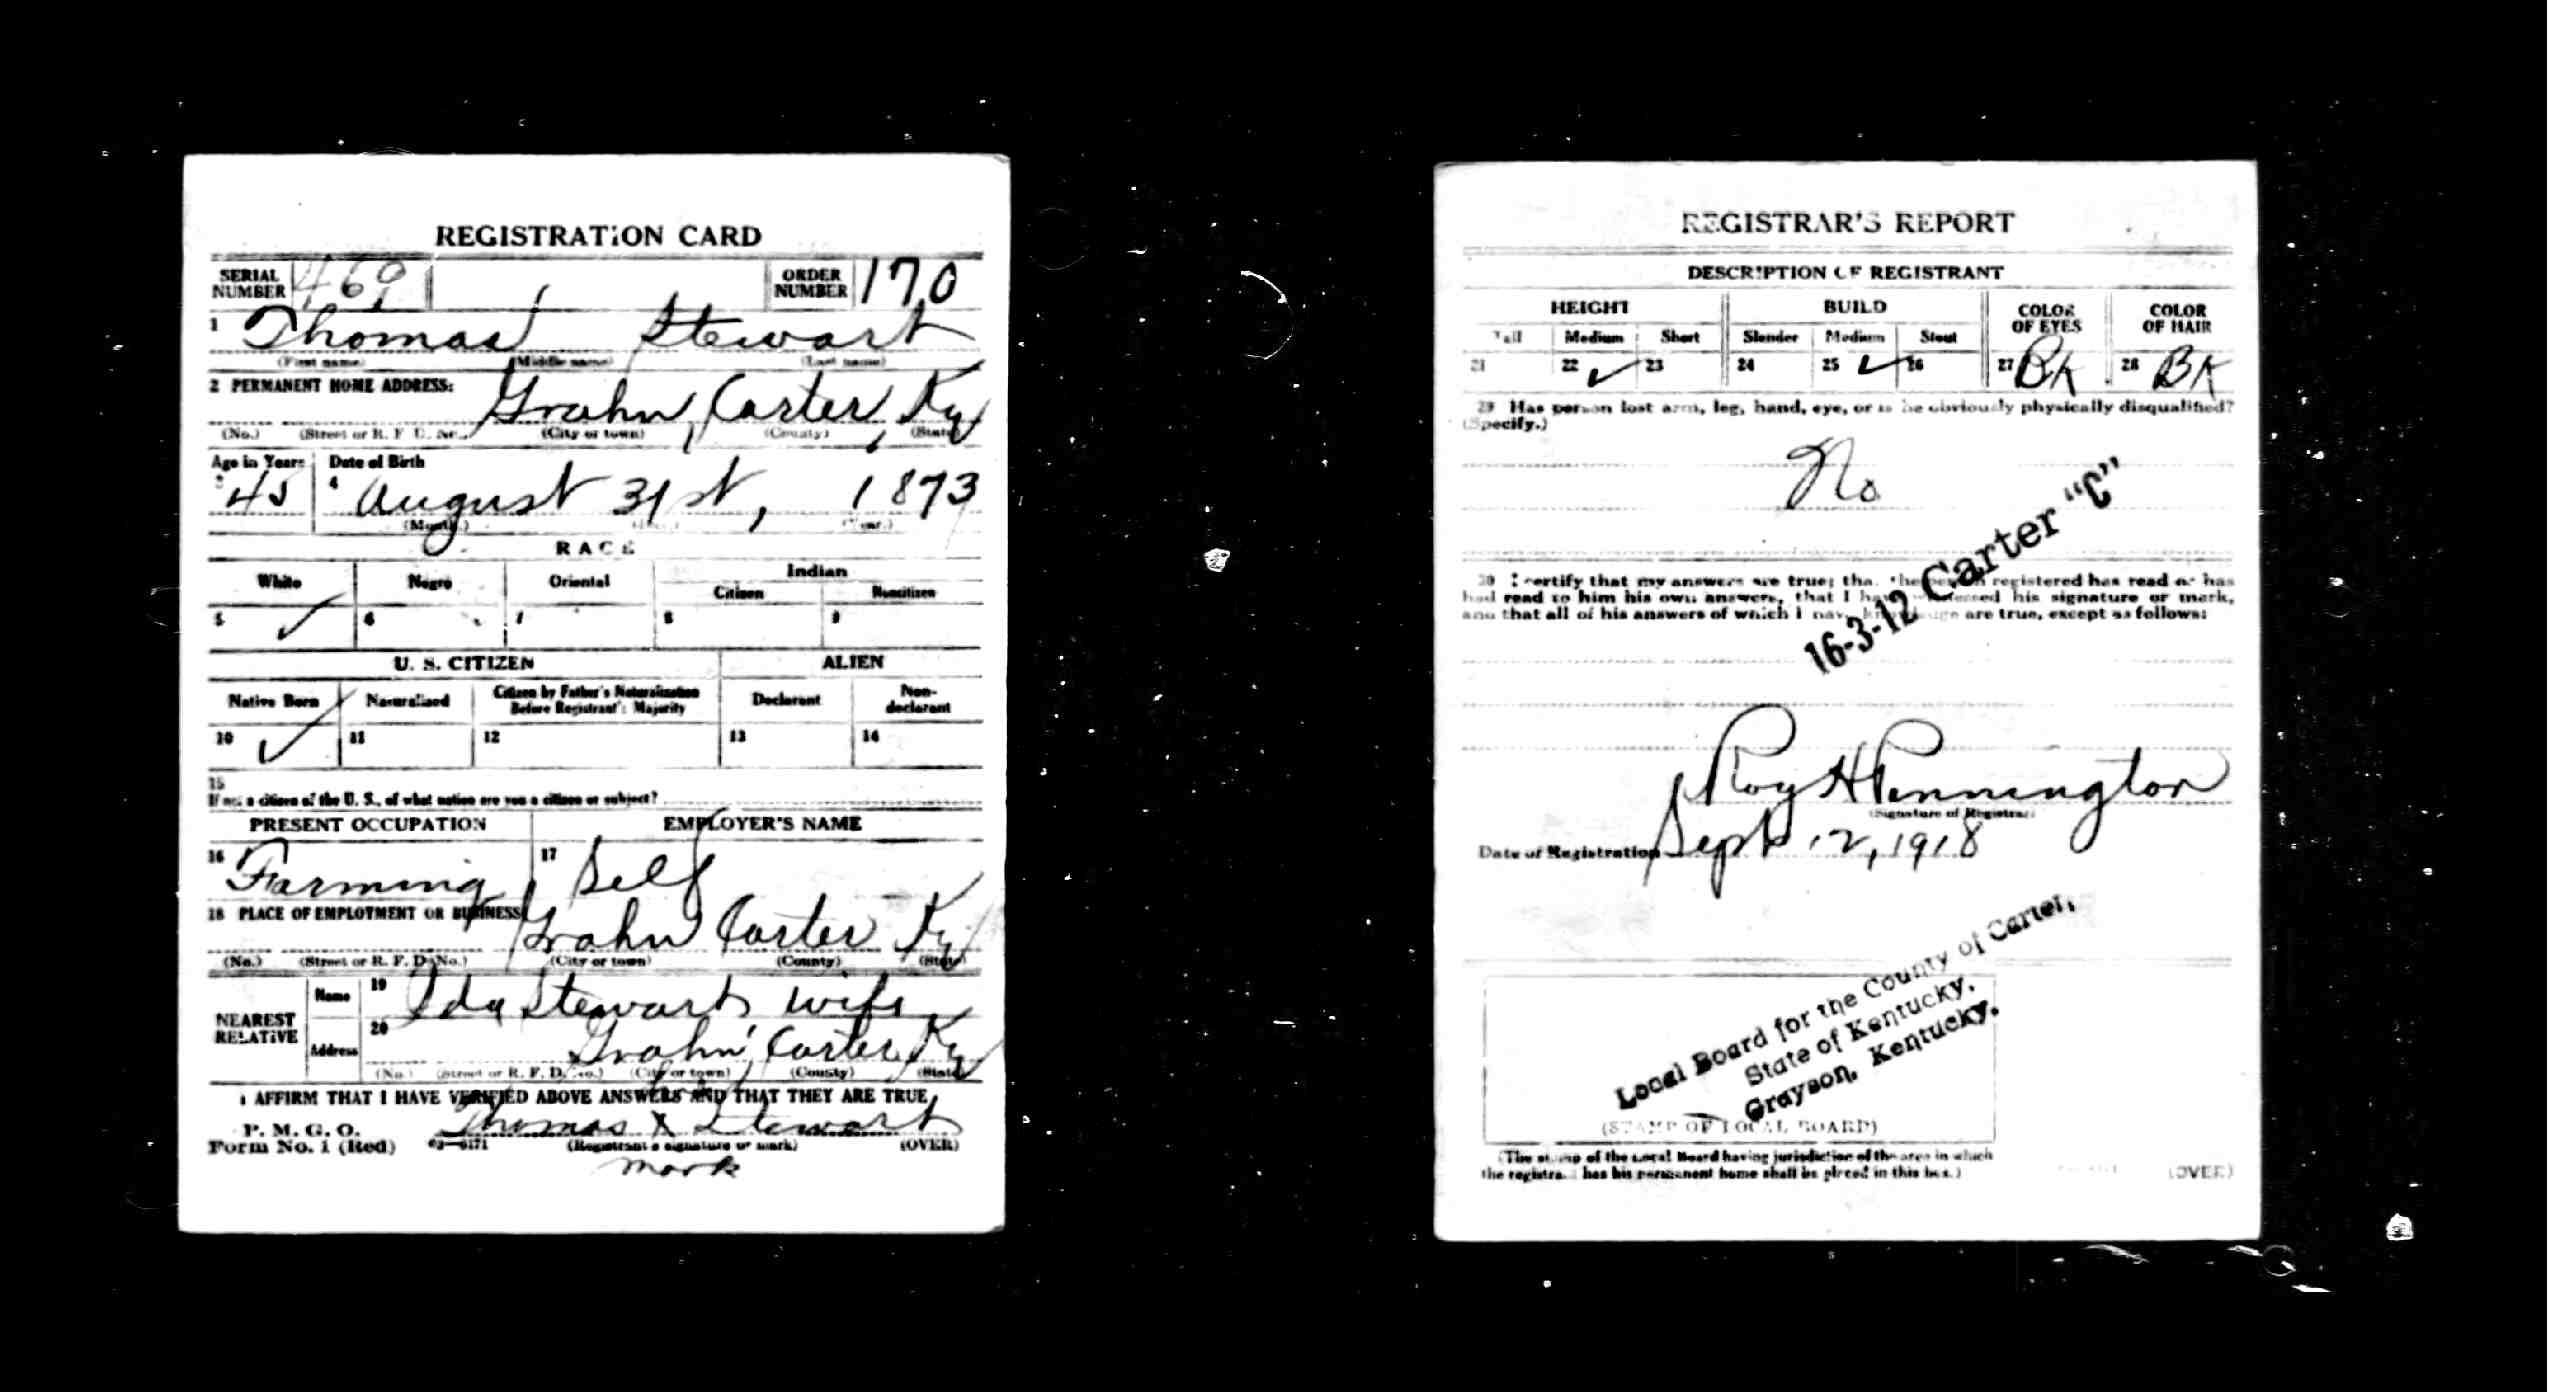 REGISTRATION CARD
SERIAL NUMBER 469 ORDER NUMBER 170
1 Thomas Stewart
(First name) (Middle name) (Last name)
2 PERMANENT HOME ADDRESS:
Grahn, Carter, Ky
(No.) (Street or R. F. D. No.) (City or town) (County) (State)
Age in Years Date of Birth
3 45 4 August 31st, 1873
(Month.) (Day.) (Year.)
RACE
White Negro Oriental Indian
Citizen Noncitizen
5 ✓ 6 7 8 9
U. S. CITIZEN ALIEN
Native Born Naturalized Citizen by Father's Naturalization Before Registrant's Majority Declarant Non-declarant
10 ✓ 11 12 13 14
15
If not a citizen of the U. S., of what nation are you a citizen or subject?
PRESENT OCCUPATION EMPLOYER'S NAME
16 Farming 17 Self
18 PLACE OF EMPLOYMENT OR BUSINESS
Grahn Carter Ky
(No.) (Street or R. F. D. No.) (City or town) (County) (State)
NEAREST RELATIVE
Name 19 Ida Stewart wife
Address 20 Grahn, Carter, Ky
(No.) (Street or R. F. D. No.) (City or town) (County) (State)
I AFFIRM THAT I HAVE VERIFIED ABOVE ANSWERS AND THAT THEY ARE TRUE
P. M. G. O.
Form No. 1 (Red) 03—6171 Thomas X Stewart
(Registrant's signature or mark) (OVER)
mark
REGISTRAR'S REPORT
DESCRIPTION OF REGISTRANT
HEIGHT BUILD COLOR OF EYES COLOR OF HAIR
Tall Medium Short Slender Medium Stout
21 22 ✓ 23 24 25 ✓ 26 27 Bk 28 Bk
29 Has person lost arm, leg, hand, eye, or is he obviously physically disqualified?
(Specify.)
No
16-3-12 Carter "C"
30 I certify that my answers are true; that the person registered has read or has
had read to him his own answers, that I have witnessed his signature or mark,
and that all of his answers of which I have knowledge are true, except as follows:
Roy H Pennington
(Signature of Registrar)
Date of Registration Sept 12, 1918
Local Board for the County of Carter,
State of Kentucky,
Grayson, Kentucky.
(STAMP OF LOCAL BOARD)
(The stamp of the Local Board having jurisdiction of the area in which
the registrant has his permanent home shall be placed in this box.)
(OVER)